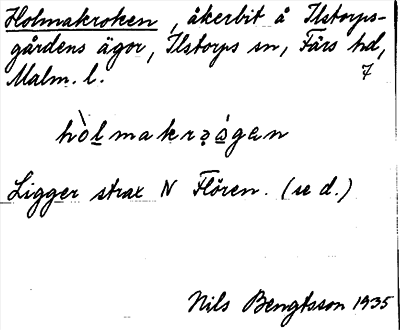 Holmakroken, åkerbit å Ilstorps-
gårdens ägor, Ilstorps sn, Färs hd,
Malm. l. 7
hòlmakrəágən
Ligger strax N Flören. (se d.)
Nils Bengtsson 1935